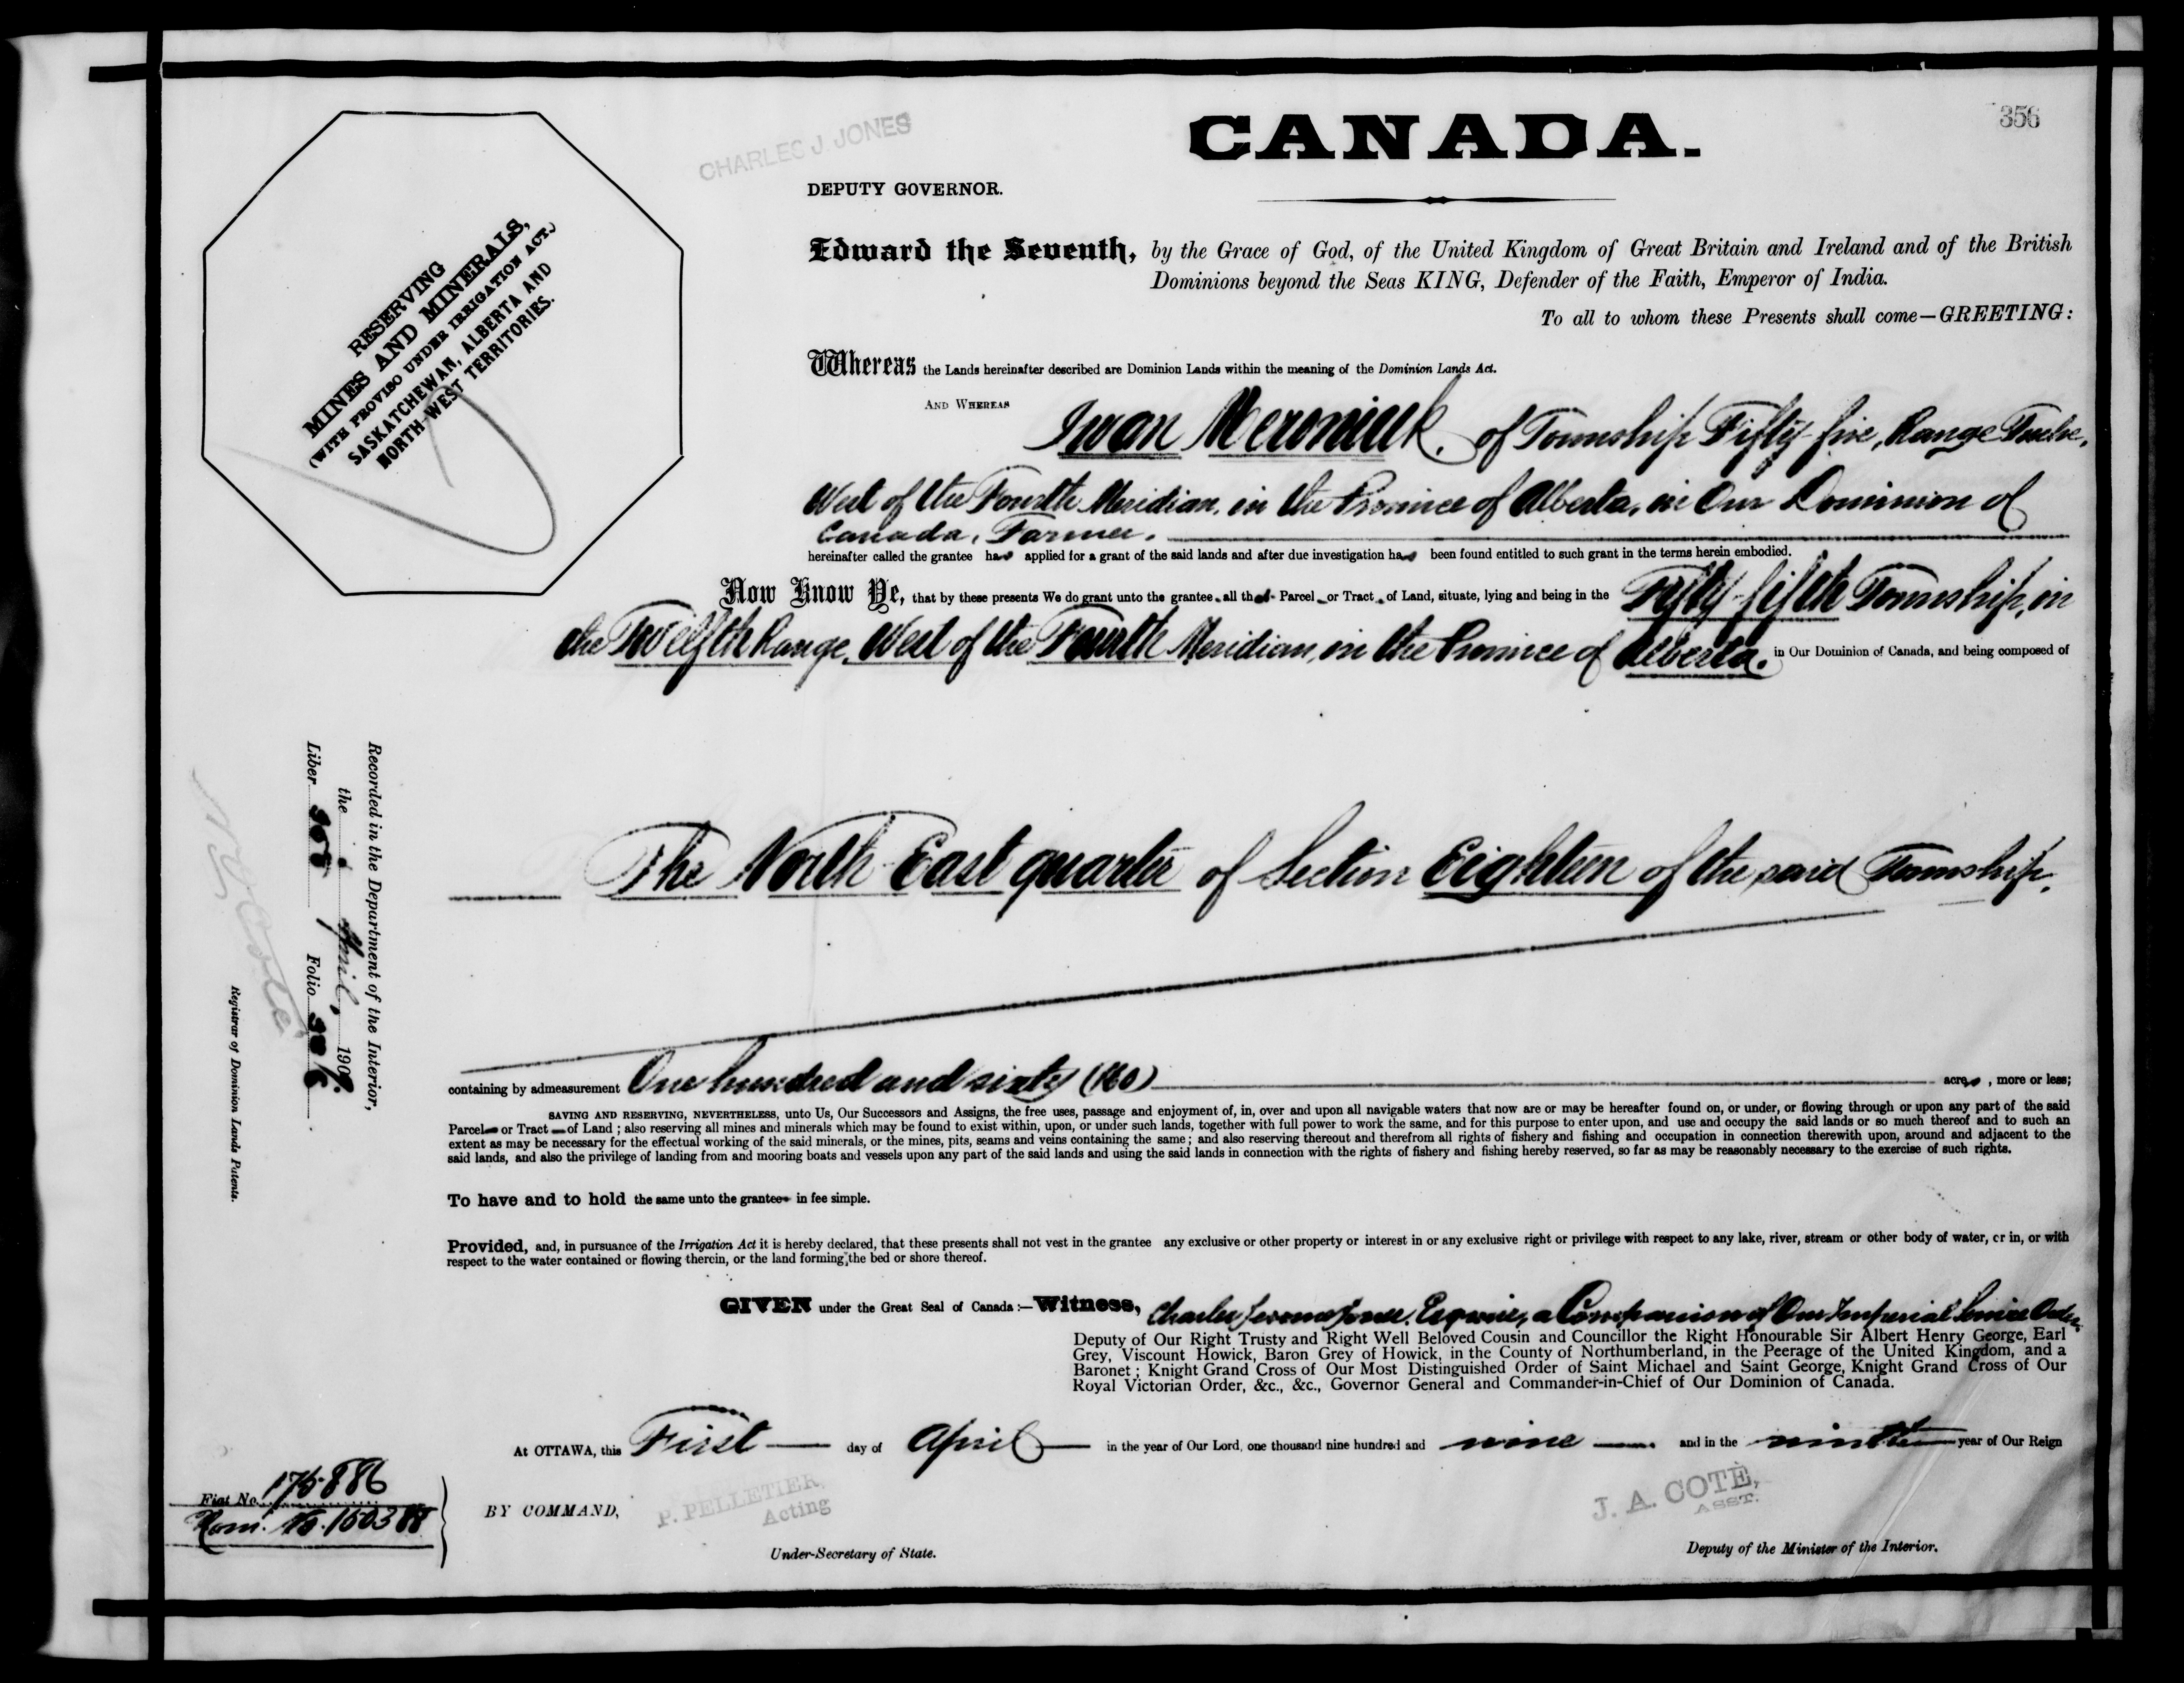 356
CANADA.
CHARLES J. JONES
DEPUTY GOVERNOR.
RESERVING
MINES AND MINERALS,
(WITH PROVISO UNDER IRRIGATION ACT.)
SASKATCHEWAN, ALBERTA AND
NORTH-WEST TERRITORIES.
Edward the Seventh, by the Grace of God, of the United Kingdom of Great Britain and Ireland and of the British
Dominions beyond the Seas KING, Defender of the Faith, Emperor of India.
To all to whom these Presents shall come—GREETING:
Whereas the Lands hereinafter described are Dominion Lands within the meaning of the Dominion Lands Act.
AND WHEREAS
Iwan Meroniuk, of Township Fifty-five, Range Twelve,
West of the Fourth Meridian, in the Province of Alberta, in Our Dominion of
Canada, Farmer.
hereinafter called the grantee has applied for a grant of the said lands and after due investigation has been found entitled to such grant in the terms herein embodied.
Now Know Ye, that by these presents We do grant unto the grantee all that Parcel or Tract of Land, situate, lying and being in the Fifty-fifth Township, in
the Twelfth Range, West of the Fourth Meridian, in the Province of Alberta, in Our Dominion of Canada, and being composed of
The North East quarter of Section Eighteen of the said Township.
Recorded in the Department of the Interior,
the April, 1909
Liber Folio
Registrar of Dominion Lands Patents.
containing by admeasurement One hundred and sixty (160) acres, more or less;
SAVING AND RESERVING, NEVERTHELESS, unto Us, Our Successors and Assigns, the free uses, passage and enjoyment of, in, over and upon all navigable waters that now are or may be hereafter found on, or under, or flowing through or upon any part of the said
Parcel or Tract of Land; also reserving all mines and minerals which may be found to exist within, upon, or under such lands, together with full power to work the same, and for this purpose to enter upon, and use and occupy the said lands or so much thereof and to such an
extent as may be necessary for the effectual working of the said minerals, or the mines, pits, seams and veins containing the same; and also reserving thereout and therefrom all rights of fishery and fishing and occupation in connection therewith upon, around and adjacent to the
said lands, and also the privilege of landing from and mooring boats and vessels upon any part of the said lands and using the said lands in connection with the rights of fishery and fishing hereby reserved, so far as may be reasonably necessary to the exercise of such rights.
To have and to hold the same unto the grantee in fee simple.
Provided, and, in pursuance of the Irrigation Act it is hereby declared, that these presents shall not vest in the grantee any exclusive or other property or interest in or any exclusive right or privilege with respect to any lake, river, stream or other body of water, or in, or with
respect to the water contained or flowing therein, or the land forming the bed or shore thereof.
GIVEN under the Great Seal of Canada:—Witness, Charles Jerome Jones, Esquire, a Companion of Our Imperial Service Order,
Deputy of Our Right Trusty and Right Well Beloved Cousin and Councillor the Right Honourable Sir Albert Henry George, Earl
Grey, Viscount Howick, Baron Grey of Howick, in the County of Northumberland, in the Peerage of the United Kingdom, and a
Baronet; Knight Grand Cross of Our Most Distinguished Order of Saint Michael and Saint George, Knight Grand Cross of Our
Royal Victorian Order, &c., &c., Governor General and Commander-in-Chief of Our Dominion of Canada.
At OTTAWA, this First day of April in the year of Our Lord, one thousand nine hundred and nine and in the ninth year of Our Reign
Fiat No. 175886
BY COMMAND,
P. PELLETIER,
Acting
Under-Secretary of State.
J. A. COTÈ,
ASST.
Deputy of the Minister of the Interior.